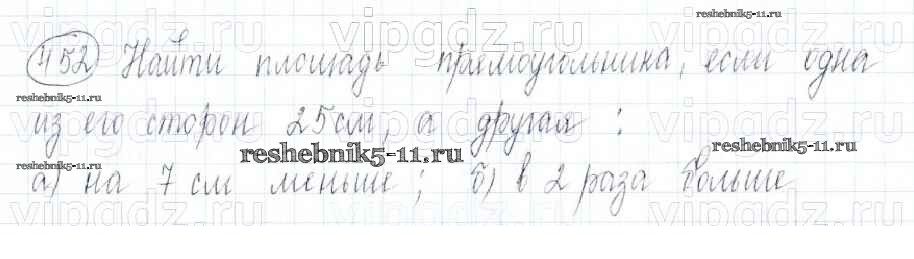 reshebnik5-11.ru
452 Найти площадь прямоугольника, если одна
reshebnik5-11.ru
из его сторон 25 см, а другая :
reshebnik5-11.ru
reshebnik5-11.ru
reshebnik5-11.ru
а) на 7 см меньше; б) в 2 раза больше
vipgdz.ru vipgdz.ru vipgdz.ru vipgdz.ru